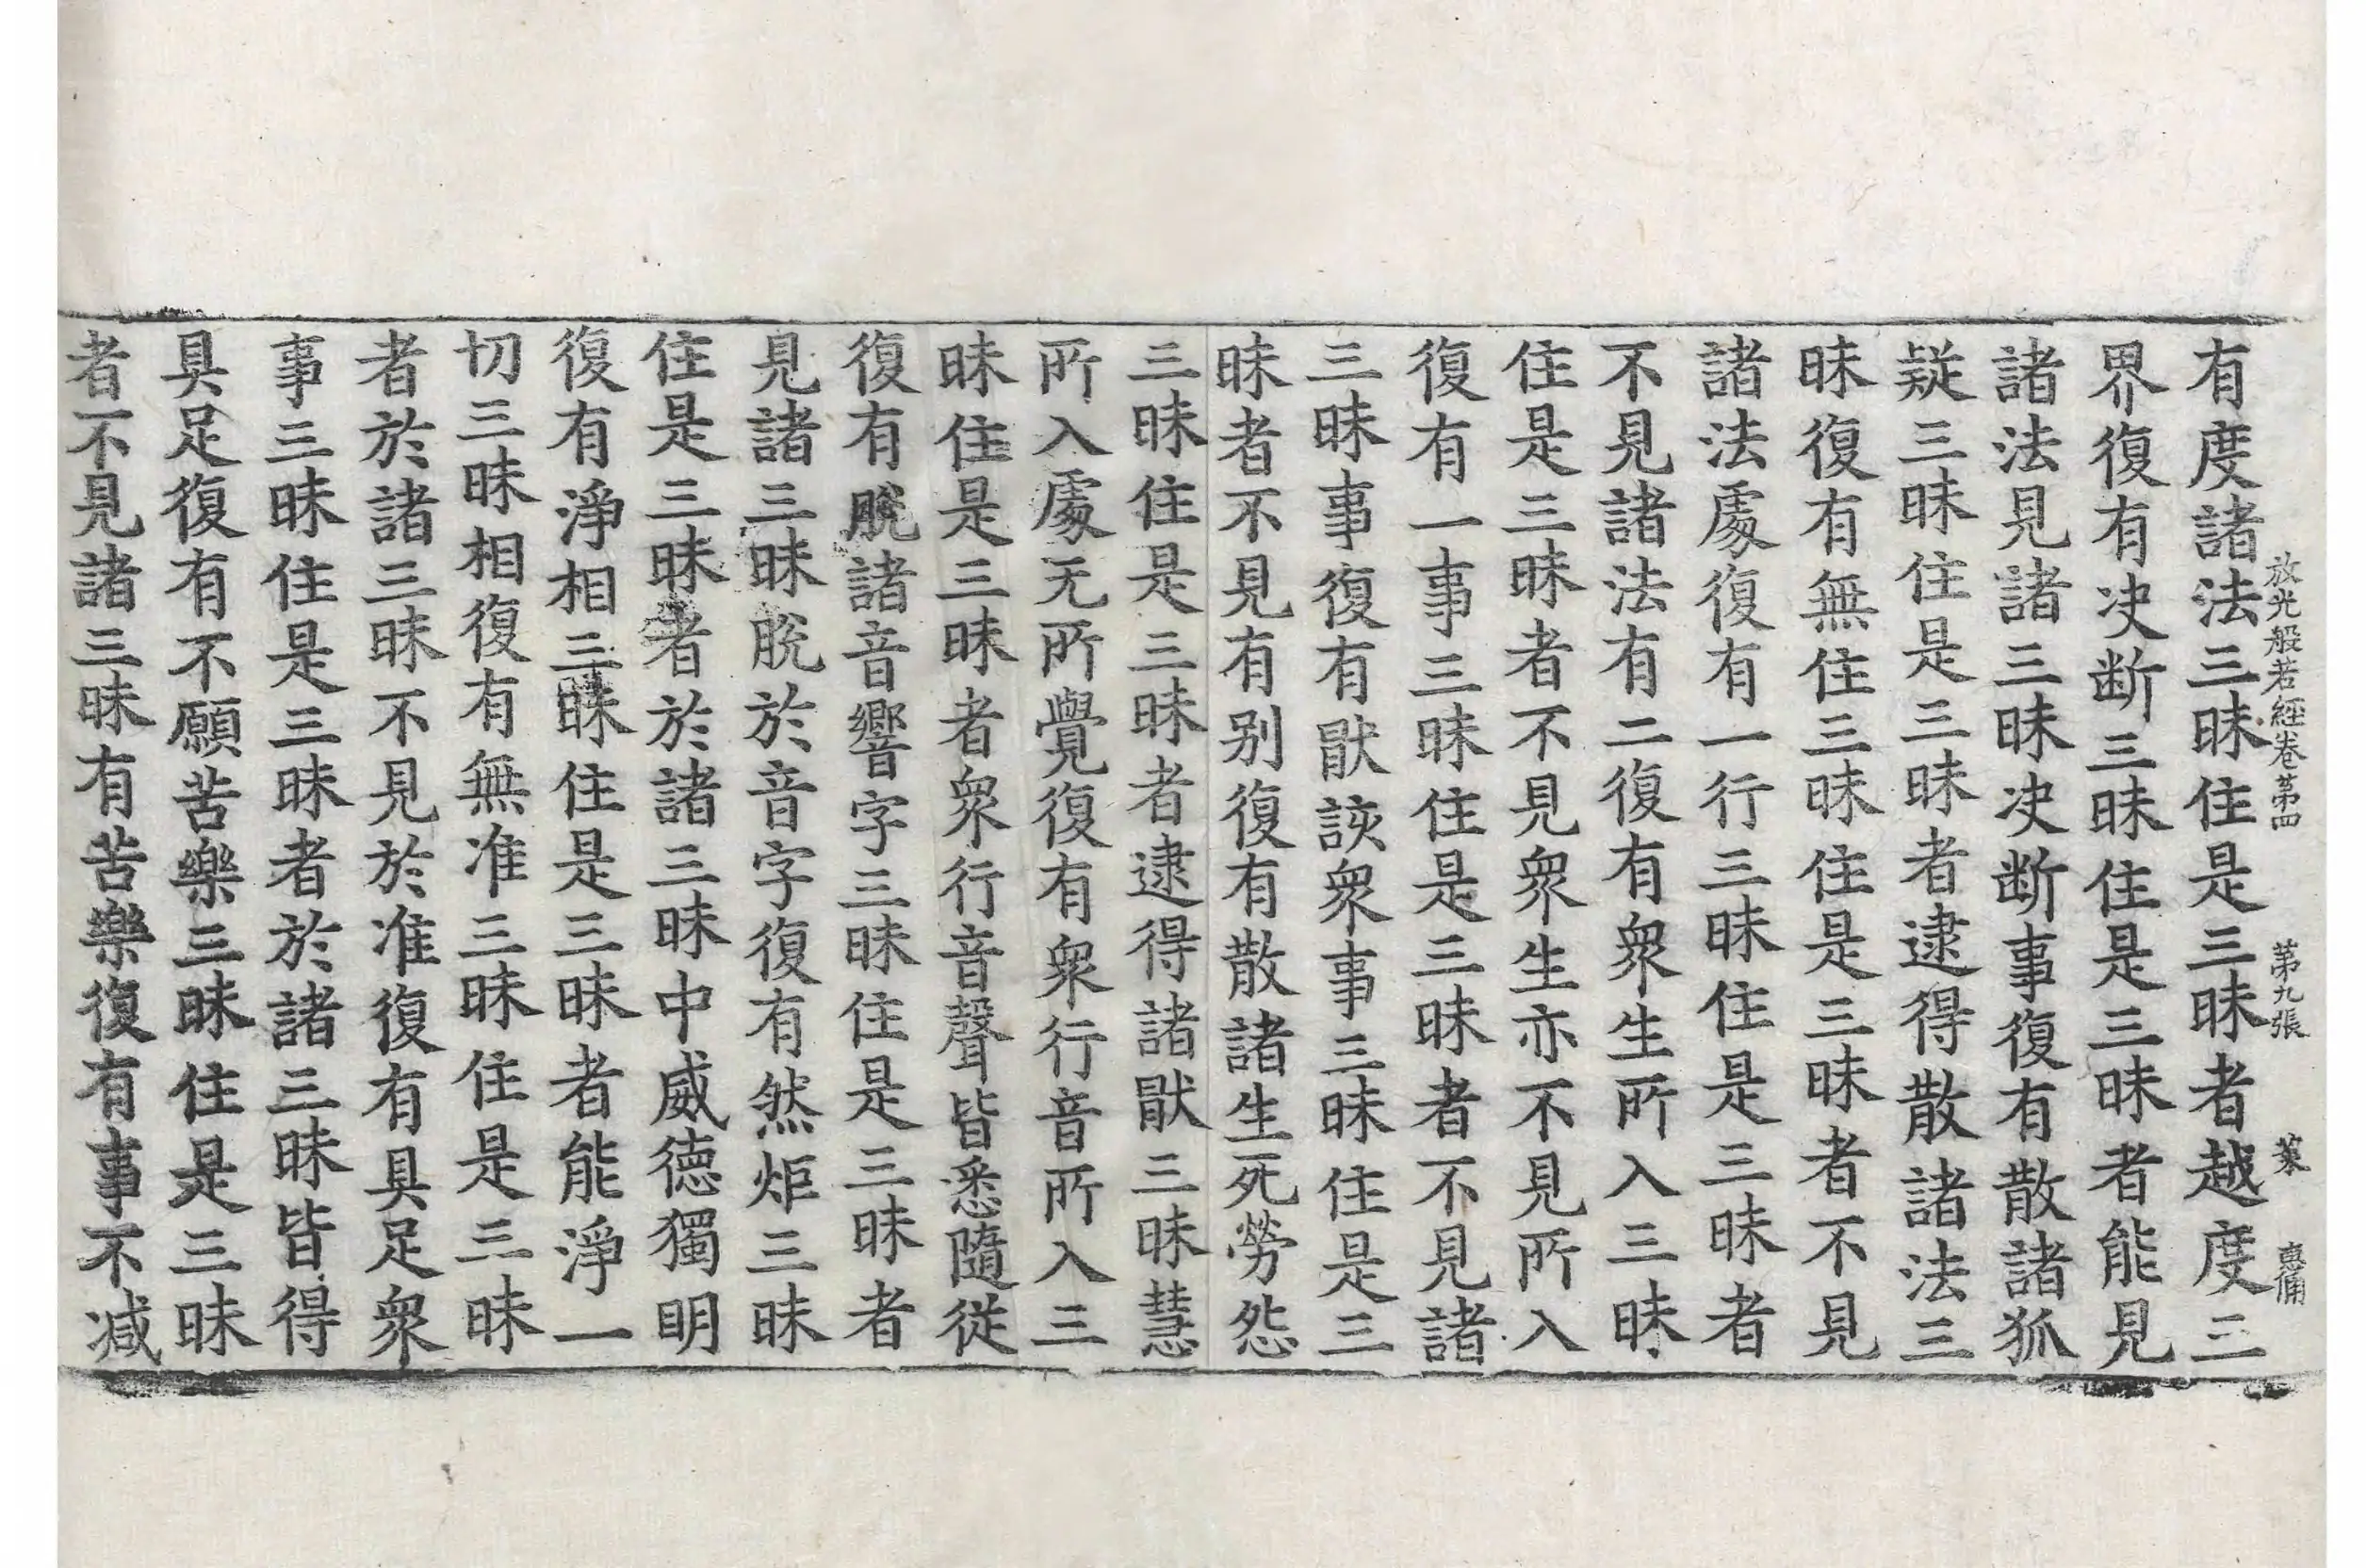 放光般若經卷第四 第九張 菜 惠脩
有度諸法三昧住是三昧者越度三
界復有决断三昧住是三昧者能見
諸法見諸三昧决断事復有散諸狐
疑三昧住是三昧者逮得散諸法三
昧復有無住三昧住是三昧者不見
諸法處復有一行三昧住是三昧者
不見諸法有二復有衆生所入三昧
住是三昧者不見衆生亦不見所入
復有一事三昧住是三昧者不見諸
三昧事復有猒該衆事三昧住是三
昧者不見有别復有散諸生死勞怨
三昧住是三昧者逮得諸猒三昧慧
所入處无所覺復有衆行音所入三
昧住是三昧者衆行音聲皆悉隨從
復有脫諸音響字三昧住是三昧者
見諸三昧脫於音字復有然炬三昧
住是三昧者於諸三昧中威德獨明
復有淨相三昧住是三昧者能淨一
切三昧相復有無准三昧住是三昧
者於諸三昧不見於准復有具足衆
事三昧住是三昧者於諸三昧皆得
具足復有不願苦樂三昧住是三昧
者不見諸三昧有苦樂復有事不减